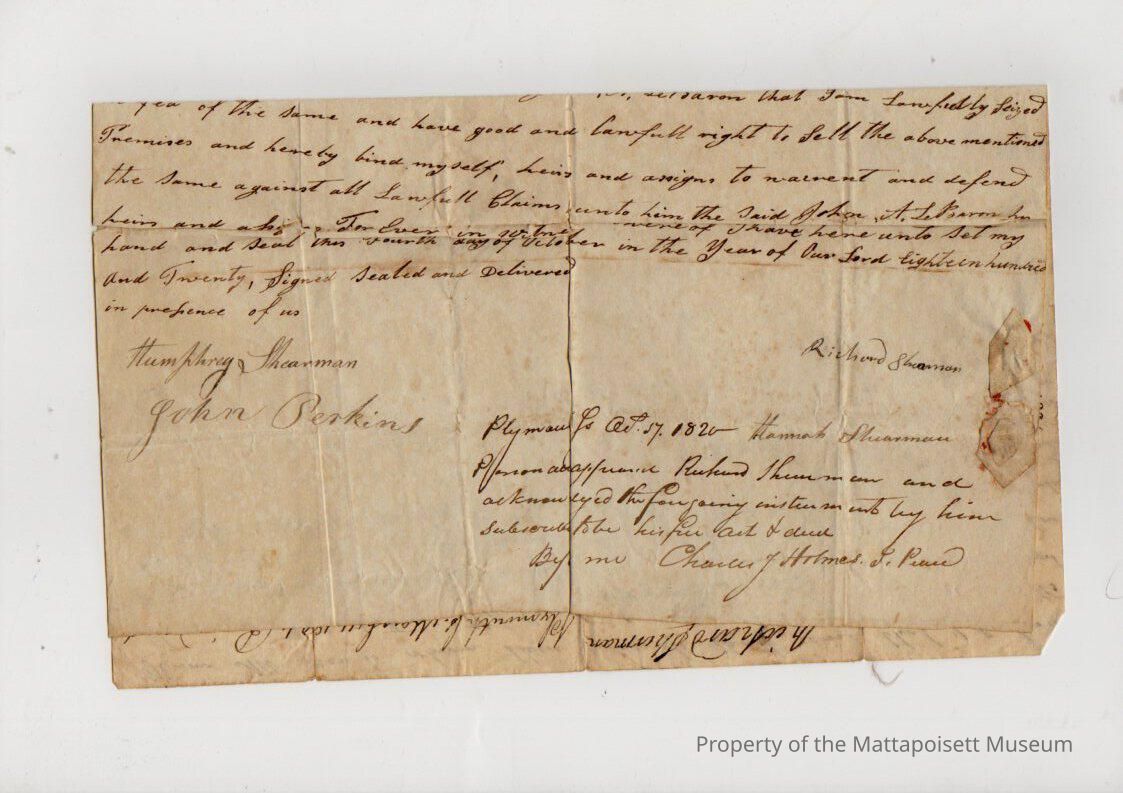 of the same and have good and lawfull right to Sell the above mentioned
LeBaron that I am Lawfully Seized
Premises and hereby bind myself, heirs and assigns to warrent and defend
the same against all Lawfull Claims unto him the Said John A. LeBaron
heirs and For Ever in witness were of I have here unto Set my
hand and Seal this fourth day of October in the Year of Our Lord Eighteen hundred
And Twenty, Signed Sealed and Delivered
in presence of us
Humphrey Shearman
Richard Shearman
John Perkins
Plymouth Ss Oct. 17. 1820 Hannah Shearman
Personally appeared Richard Shearman and
acknowledged the foregoing instrument by him
subscribed to be his free act & deed
By me Charles J Holmes. J. Peace
Richard Shearman
Plymouth
Property of the Mattapoisett Museum